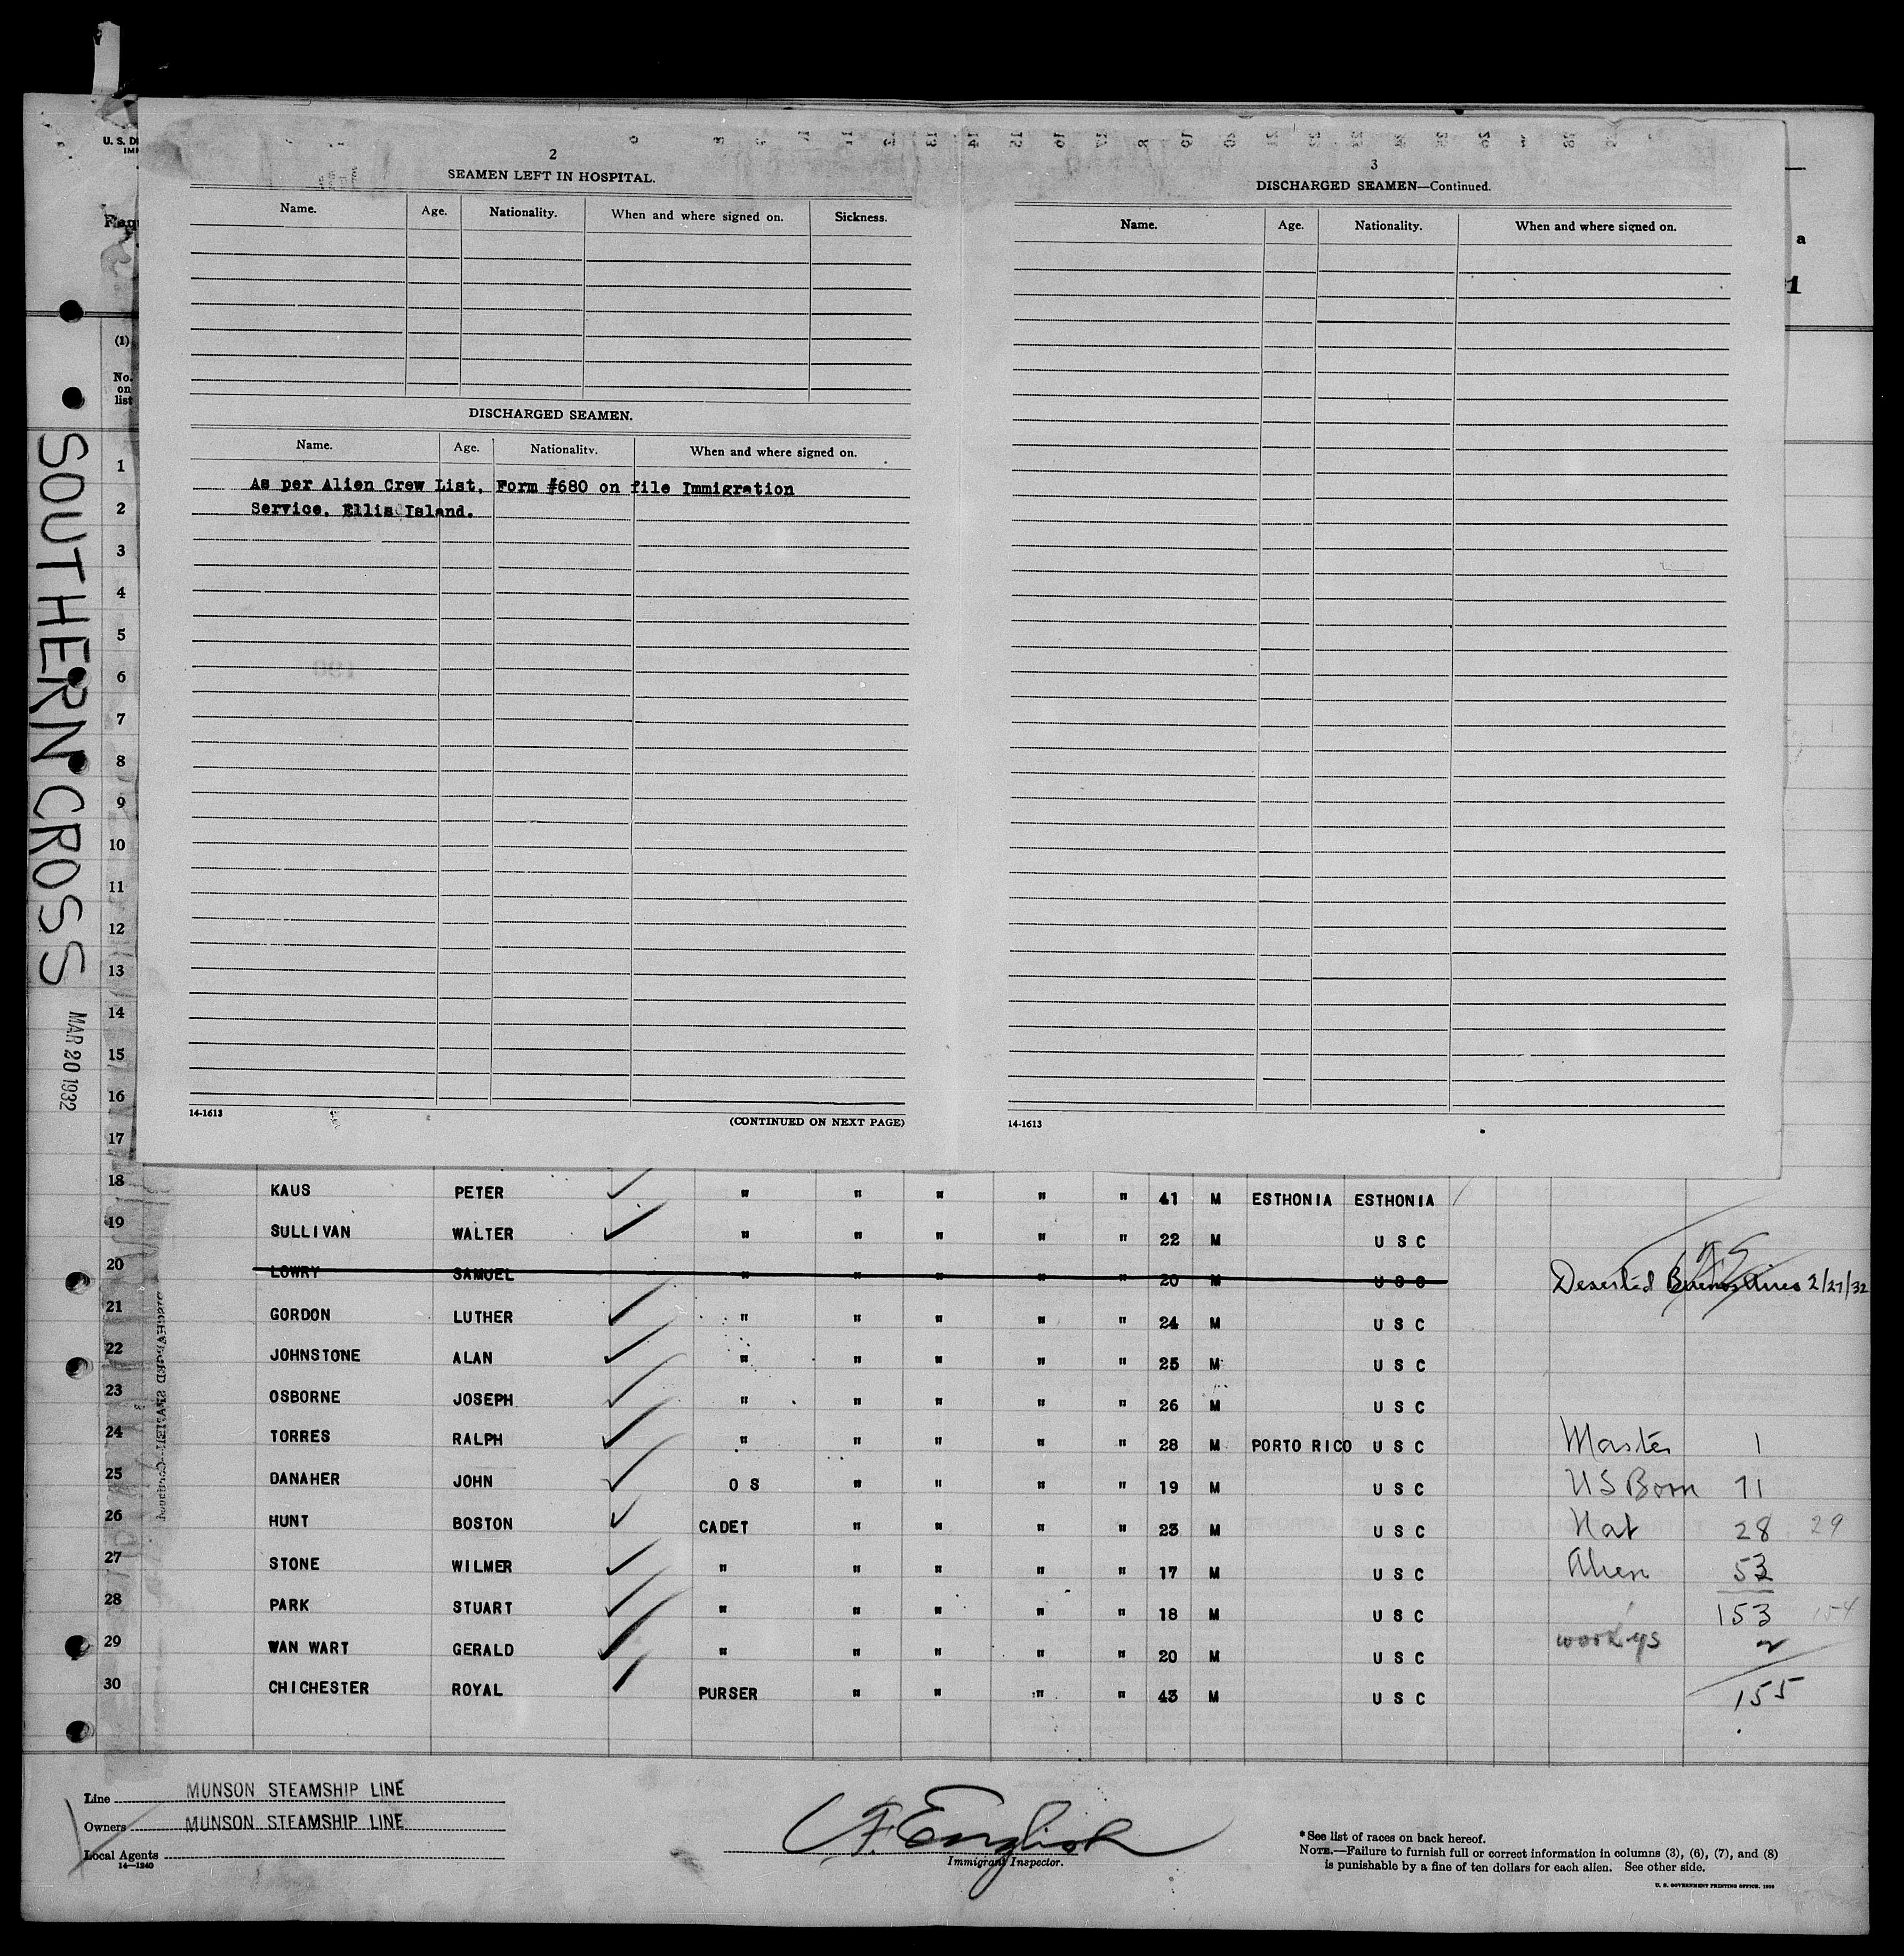 U. S. D
IM
(1)
No.
on
list
SOUTHERN CROSS
MAR 20 1932
2
SEAMEN LEFT IN HOSPITAL.
Name. Age. Nationality. When and where signed on. Sickness.
DISCHARGED SEAMEN.
Name. Age. Nationality. When and where signed on.
As per Alien Crew List, Form #680 on file Immigration
Service, Ellis Island.
14-1613 (CONTINUED ON NEXT PAGE)
3
DISCHARGED SEAMEN—Continued.
Name. Age. Nationality. When and where signed on.
14-1613
a
1
1
2
3
4
5
6
7
8
9
10
11
12
13
14
15
16
17
18 KAUS PETER " " " " " 41 M ESTHONIA ESTHONIA
19 SULLIVAN WALTER " " " " " 22 M U S C
20 LOWRY SAMUEL " " " " " 20 M U S C Deserted Buenos Aires 2/27/32
21 GORDON LUTHER " " " " " 24 M U S C
22 JOHNSTONE ALAN " " " " " 25 M U S C
23 OSBORNE JOSEPH " " " " " 26 M U S C
24 TORRES RALPH " " " " " 28 M PORTO RICO U S C Master 1
25 DANAHER JOHN O S " " " " 19 M U S C US Born 71
26 HUNT BOSTON CADET " " " " 23 M U S C Nat 28 29
27 STONE WILMER " " " " " 17 M U S C Alien 53
28 PARK STUART " " " " " 18 M U S C 153 154
29 WAN WART GERALD " " " " " 20 M U S C workgs 2
30 CHICHESTER ROYAL PURSER " " " " 43 M U S C 155
Line MUNSON STEAMSHIP LINE
Owners MUNSON STEAMSHIP LINE
Local Agents
14—1240
English
Immigrant Inspector.
*See list of races on back hereof.
NOTE.—Failure to furnish full or correct information in columns (3), (6), (7), and (8)
is punishable by a fine of ten dollars for each alien. See other side.
U. S. GOVERNMENT PRINTING OFFICE.